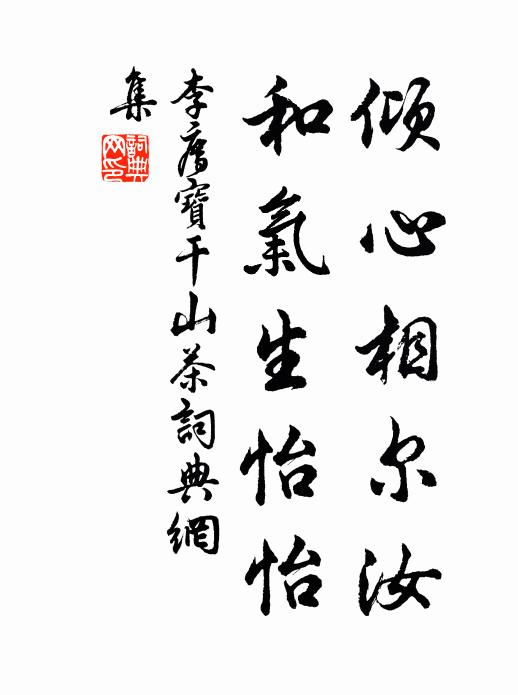 傾心相尔汝
和氣生怡怡
李寶干山茶詞典網
集
詞典网印